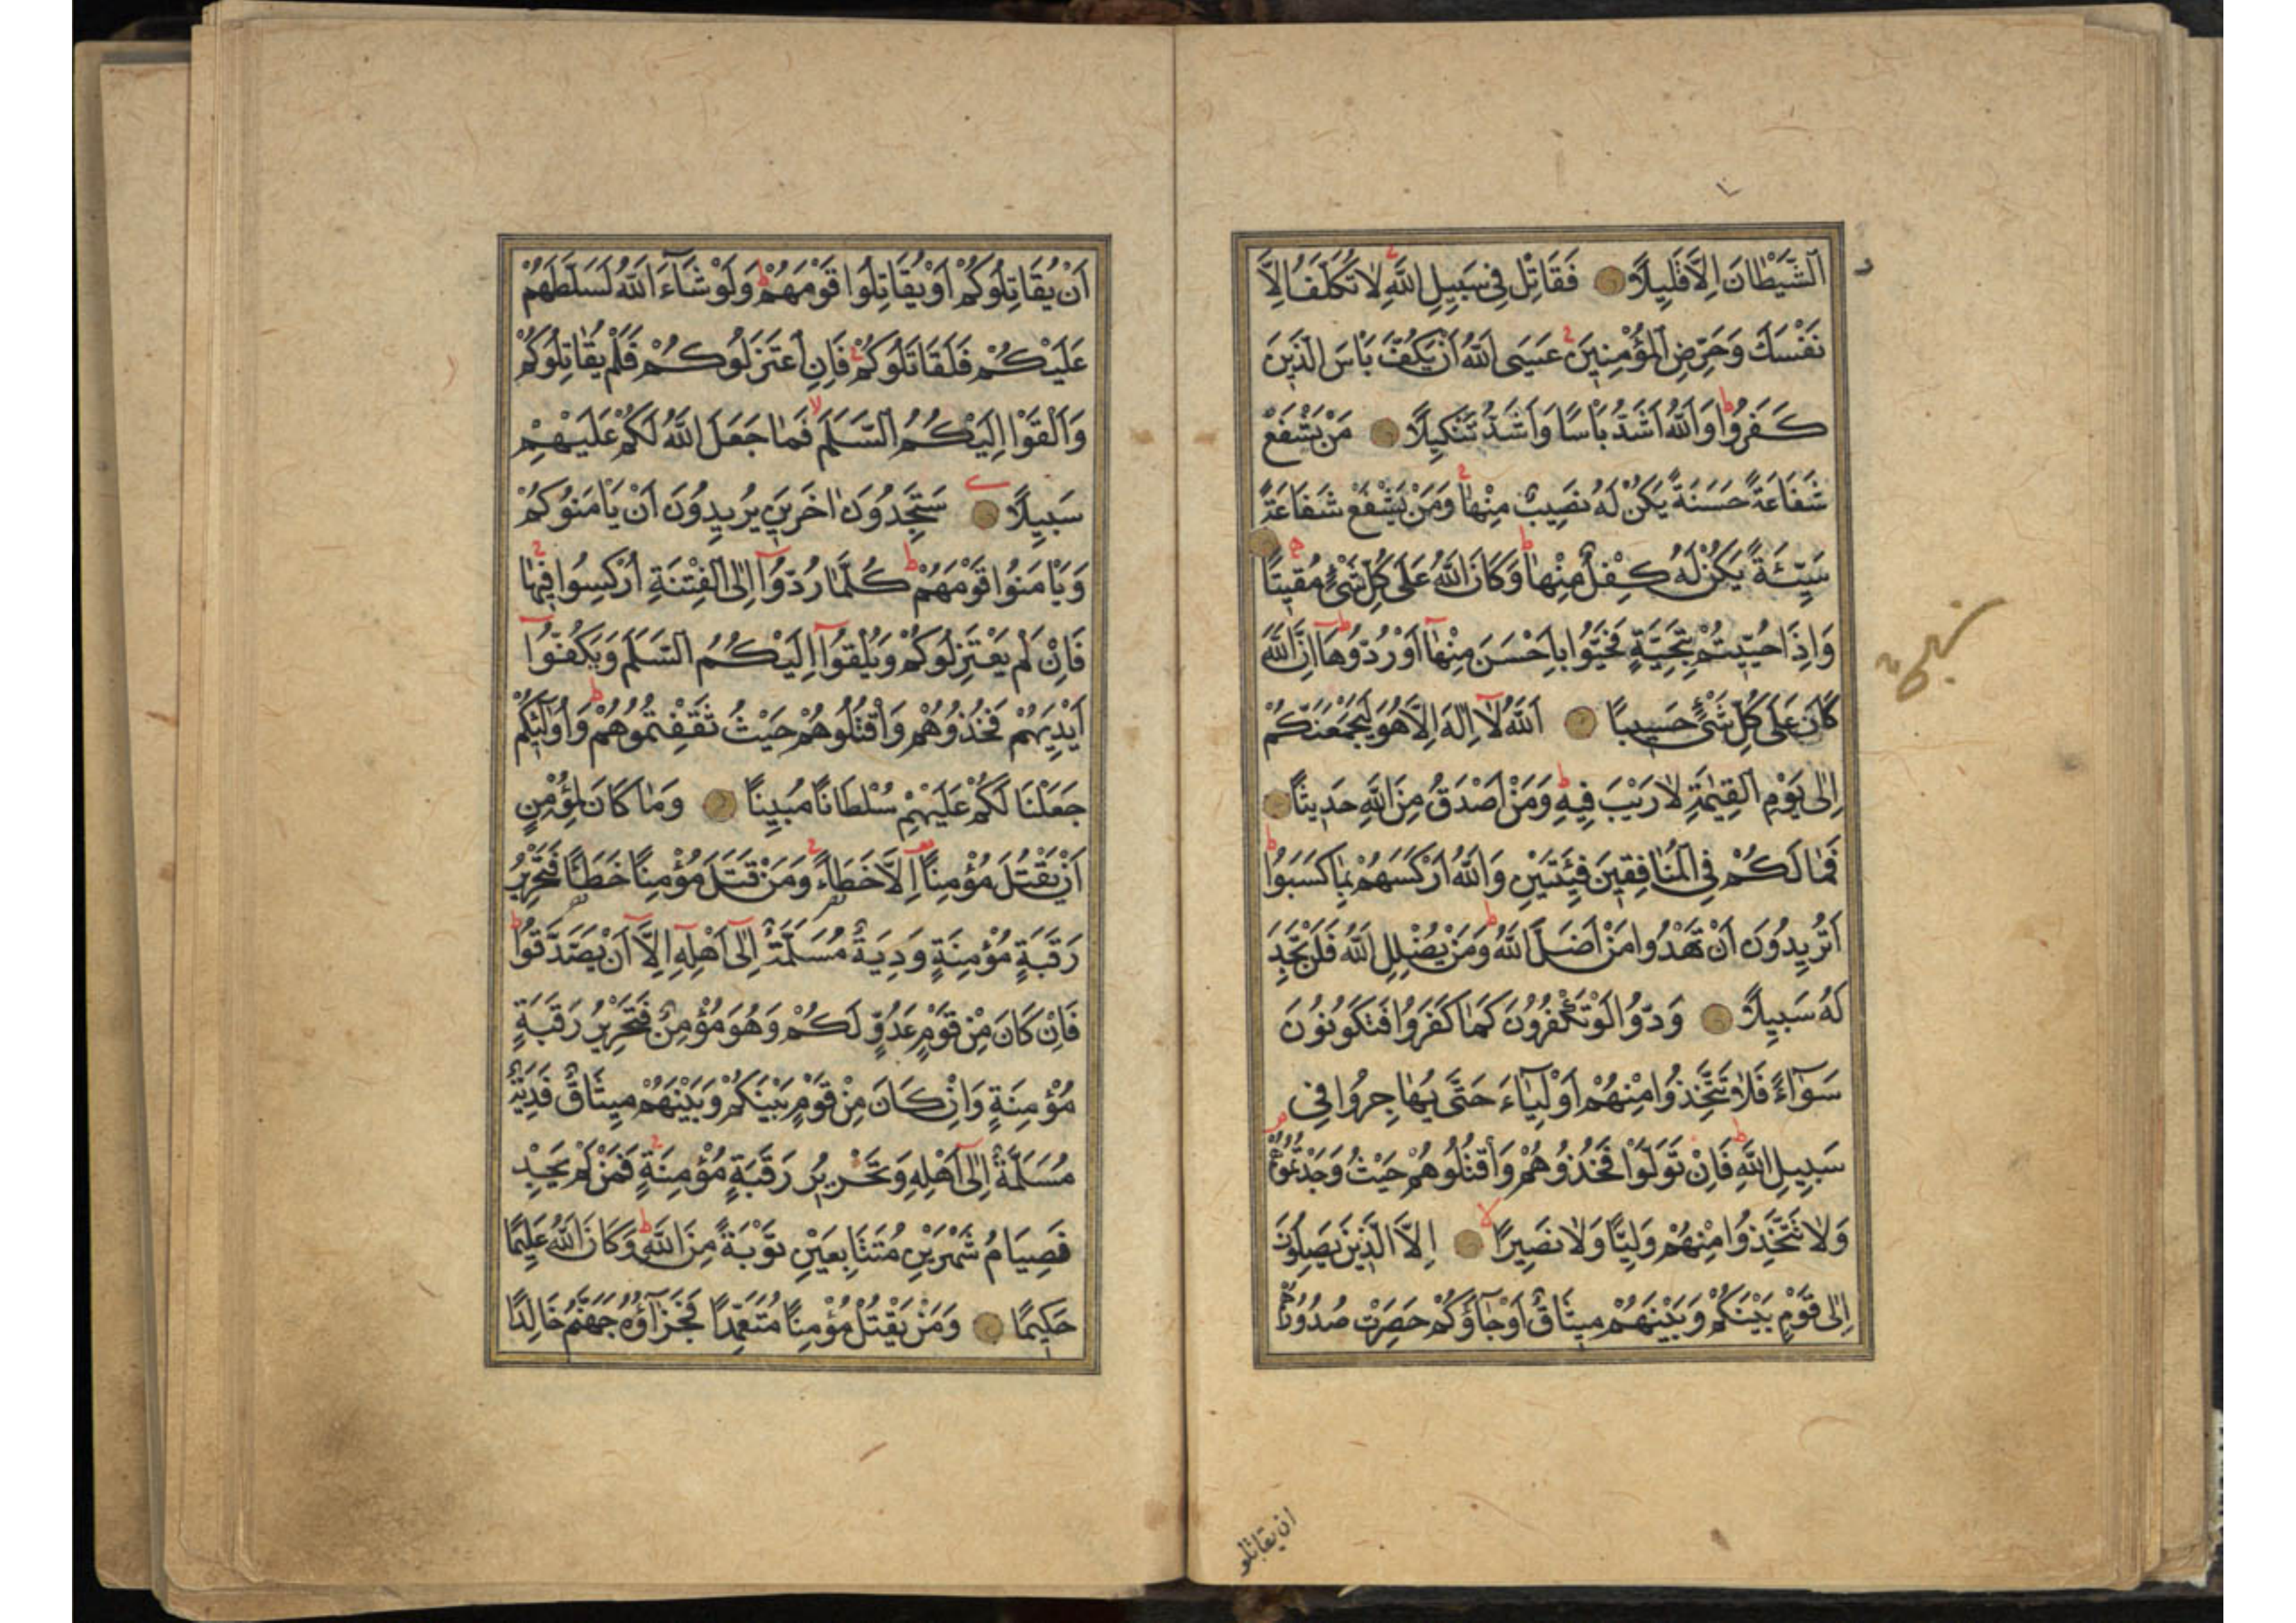 اَلشَّيْطَانَ اِلَّا قَلِيلًا فَقَاتِلْ فِي سَبِيلِ اللّٰهِ لَا تُكَلَّفُ اِلَّا
نَفْسَكَ وَحَرِّضِ الْمُؤْمِنِينَ عَسَى اللّٰهُ اَنْ يَكُفَّ بَاْسَ الَّذِينَ
كَفَرُوا وَاللّٰهُ اَشَدُّ بَاْسًا وَاَشَدُّ تَنْكِيلًا مَنْ يَشْفَعْ
شَفَاعَةً حَسَنَةً يَكُنْ لَهُ نَصِيبٌ مِنْهَا وَمَنْ يَشْفَعْ شَفَاعَةً
سَيِّئَةً يَكُنْ لَهُ كِفْلٌ مِنْهَا وَكَانَ اللّٰهُ عَلَى كُلِّ شَيْءٍ مُقِيتًا
وَاِذَا حُيِّيتُمْ بِتَحِيَّةٍ فَحَيُّوا بِاَحْسَنَ مِنْهَا اَوْ رُدُّوهَا اِنَّ اللّٰهَ
كَانَ عَلَى كُلِّ شَيْءٍ حَسِيبًا اَللّٰهُ لَا اِلٰهَ اِلَّا هُوَ لَيَجْمَعَنَّكُمْ
اِلٰى يَوْمِ الْقِيٰمَةِ لَا رَيْبَ فِيهِ وَمَنْ اَصْدَقُ مِنَ اللّٰهِ حَدِيثًا
فَمَا لَكُمْ فِي الْمُنَافِقِينَ فِئَتَيْنِ وَاللّٰهُ اَرْكَسَهُمْ بِمَا كَسَبُوا
اَتُرِيدُونَ اَنْ تَهْدُوا مَنْ اَضَلَّ اللّٰهُ وَمَنْ يُضْلِلِ اللّٰهُ فَلَنْ تَجِدَ
لَهُ سَبِيلًا وَدُّوا لَوْ تَكْفُرُونَ كَمَا كَفَرُوا فَتَكُونُونَ
سَوَاءً فَلَا تَتَّخِذُوا مِنْهُمْ اَوْلِيَاءَ حَتّٰى يُهَاجِرُوا فِي
سَبِيلِ اللّٰهِ فَاِنْ تَوَلَّوْا فَخُذُوهُمْ وَاقْتُلُوهُمْ حَيْثُ وَجَدْتُمُوهُمْ
وَلَا تَتَّخِذُوا مِنْهُمْ وَلِيًّا وَلَا نَصِيرًا اِلَّا الَّذِينَ يَصِلُونَ
اِلٰى قَوْمٍ بَيْنَكُمْ وَبَيْنَهُمْ مِيثَاقٌ اَوْ جَاؤُكُمْ حَصِرَتْ صُدُورُهُمْ
ان يقاتلو
اَنْ يُقَاتِلُوكُمْ اَوْ يُقَاتِلُوا قَوْمَهُمْ وَلَوْ شَاءَ اللّٰهُ لَسَلَّطَهُمْ
عَلَيْكُمْ فَلَقَاتَلُوكُمْ فَاِنِ اعْتَزَلُوكُمْ فَلَمْ يُقَاتِلُوكُمْ
وَاَلْقَوْا اِلَيْكُمُ السَّلَمَ فَمَا جَعَلَ اللّٰهُ لَكُمْ عَلَيْهِمْ
سَبِيلًا سَتَجِدُونَ اٰخَرِينَ يُرِيدُونَ اَنْ يَاْمَنُوكُمْ
وَيَاْمَنُوا قَوْمَهُمْ كُلَّمَا رُدُّوا اِلَى الْفِتْنَةِ اُرْكِسُوا فِيهَا
فَاِنْ لَمْ يَعْتَزِلُوكُمْ وَيُلْقُوا اِلَيْكُمُ السَّلَمَ وَيَكُفُّوا
اَيْدِيَهُمْ فَخُذُوهُمْ وَاقْتُلُوهُمْ حَيْثُ ثَقِفْتُمُوهُمْ وَاُولٰئِكُمْ
جَعَلْنَا لَكُمْ عَلَيْهِمْ سُلْطَانًا مُبِينًا وَمَا كَانَ لِمُؤْمِنٍ
اَنْ يَقْتُلَ مُؤْمِنًا اِلَّا خَطَاءً وَمَنْ قَتَلَ مُؤْمِنًا خَطَاً فَتَحْرِيرُ
رَقَبَةٍ مُؤْمِنَةٍ وَدِيَةٌ مُسَلَّمَةٌ اِلٰى اَهْلِهِ اِلَّا اَنْ يَصَّدَّقُوا
فَاِنْ كَانَ مِنْ قَوْمٍ عَدُوٍّ لَكُمْ وَهُوَ مُؤْمِنٌ فَتَحْرِيرُ رَقَبَةٍ
مُؤْمِنَةٍ وَاِنْ كَانَ مِنْ قَوْمٍ بَيْنَكُمْ وَبَيْنَهُمْ مِيثَاقٌ فَدِيَةٌ
مُسَلَّمَةٌ اِلٰى اَهْلِهِ وَتَحْرِيرُ رَقَبَةٍ مُؤْمِنَةٍ فَمَنْ لَمْ يَجِدْ
فَصِيَامُ شَهْرَيْنِ مُتَتَابِعَيْنِ تَوْبَةً مِنَ اللّٰهِ وَكَانَ اللّٰهُ عَلِيمًا
حَكِيمًا وَمَنْ يَقْتُلْ مُؤْمِنًا مُتَعَمِّدًا فَجَزَاؤُهُ جَهَنَّمُ خَالِدًا